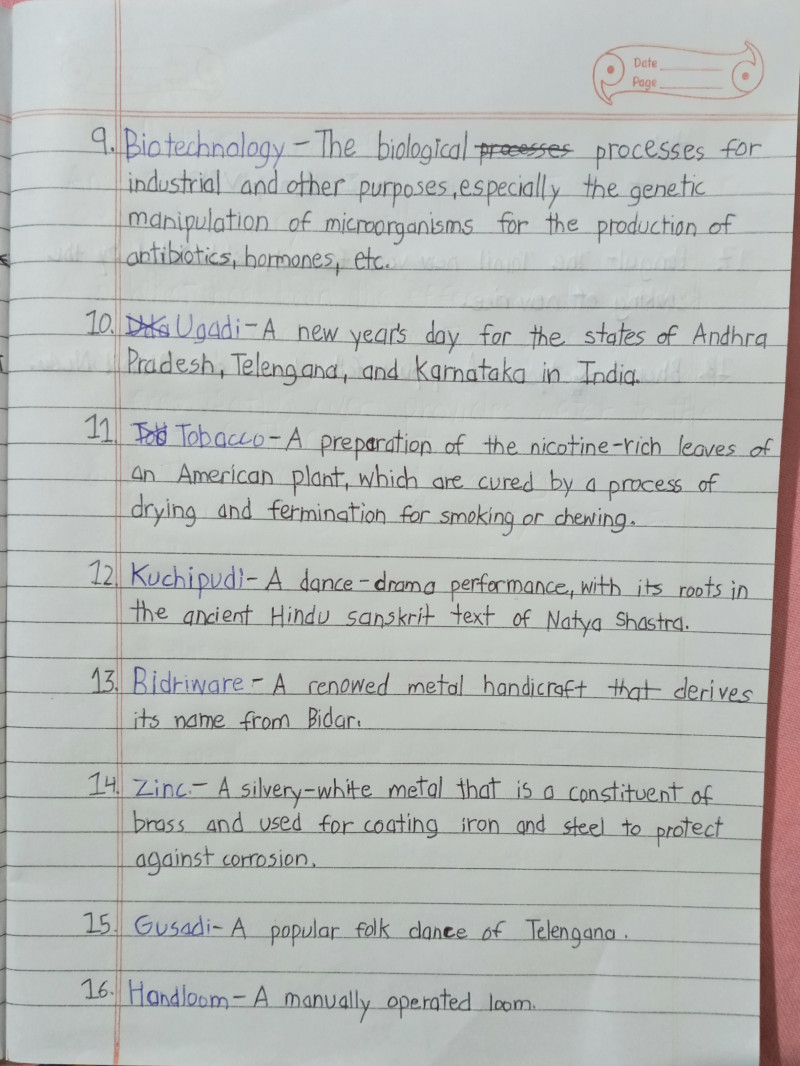 Date
Page
9. Biotechnology - The biological processes processes for
industrial and other purposes, especially the genetic
manipulation of microorganisms for the production of
antibiotics, hormones, etc.
10. Ugadi - A new year's day for the states of Andhra
Pradesh, Telengana, and Karnataka in India.
11. Tobacco - A preparation of the nicotine-rich leaves of
an American plant, which are cured by a process of
drying and fermination for smoking or chewing.
12. Kuchipudi - A dance-drama performance, with its roots in
the ancient Hindu sanskrit text of Natya Shastra.
13. Bidriware - A renowed metal handicraft that derives
its name from Bidar.
14. Zinc. - A silvery-white metal that is a constituent of
brass and used for coating iron and steel to protect
against corrosion.
15. Gusadi - A popular folk dance of Telengana.
16. Handloom - A manually operated loom.